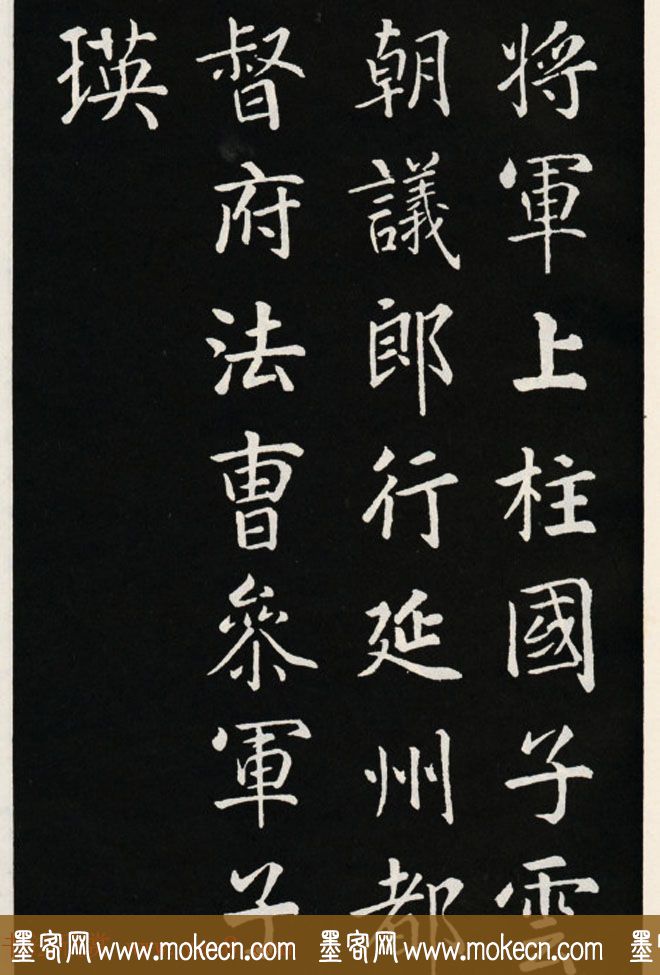 將軍上柱國子雲
朝議郎行延州都
督府法曹叅軍子
瑛
墨客网 www.mokecn.com 墨客网 www.mokecn.com